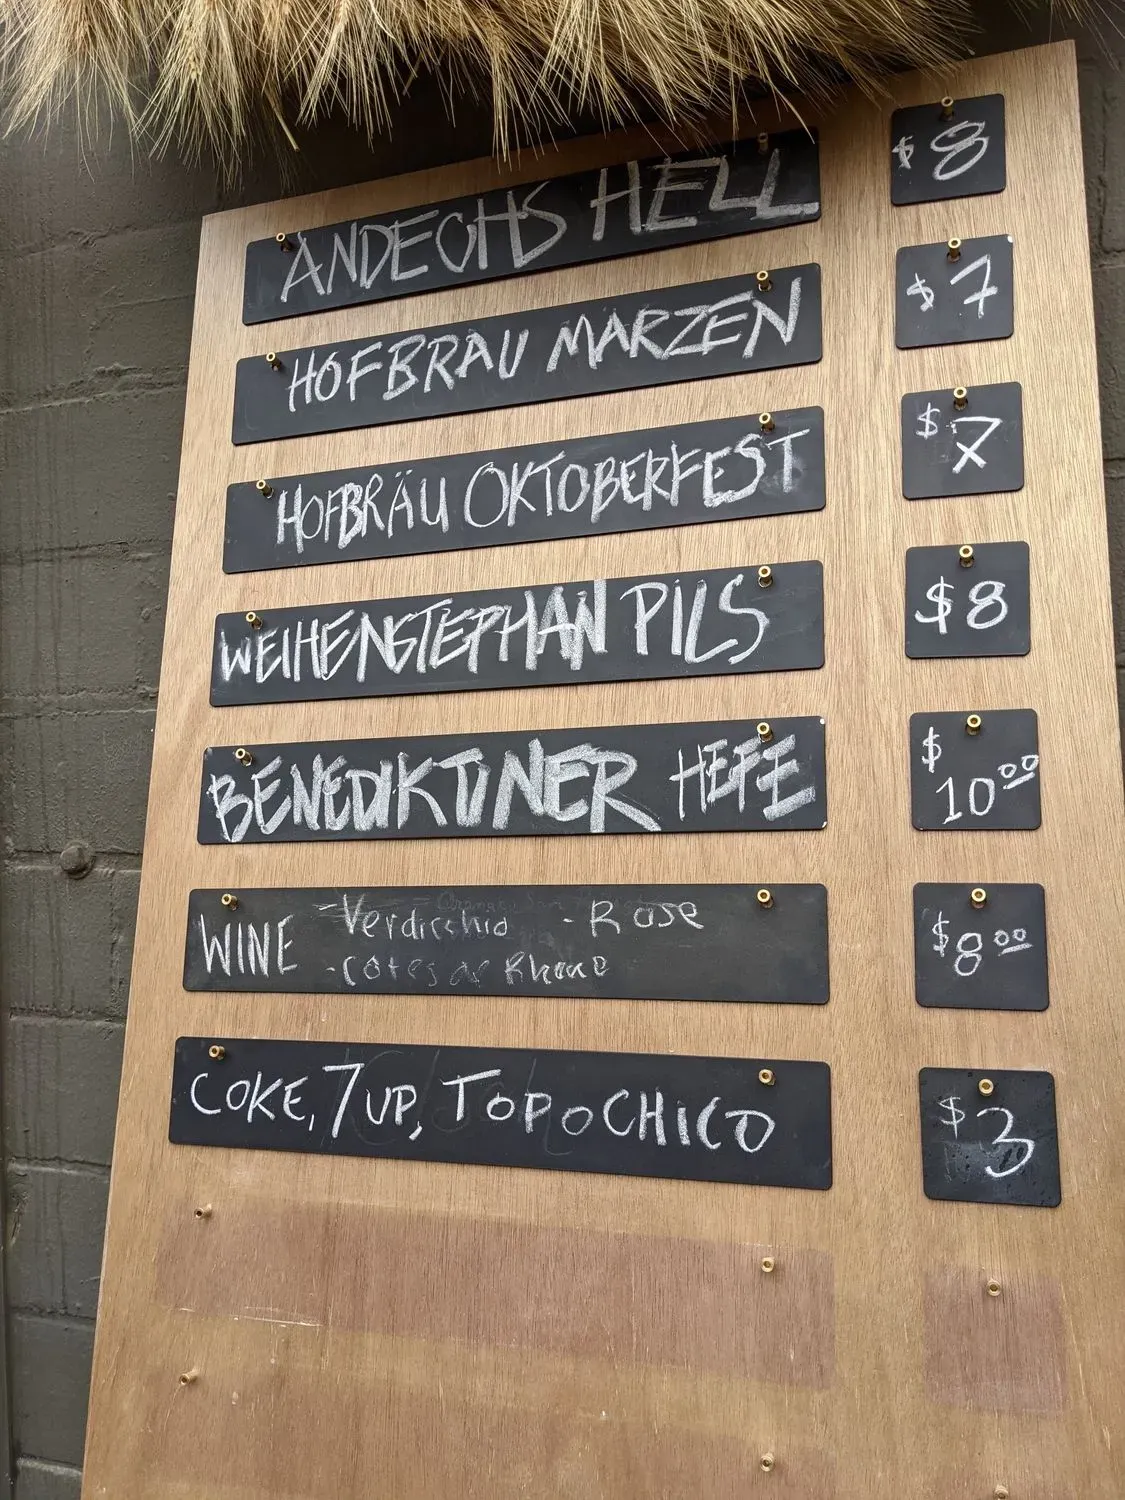 ANDECHS HELL $8
HOFBRAU MARZEN $7
HOFBRÄU OKTOBERFEST $7
WEIHENSTEPHAN PILS $8
BENEDIKTINER HEFE $10.00
WINE - Verdicchio - Rose $8.00
- Cotes de Rhone
COKE, 7UP, TOPOCHICO $3